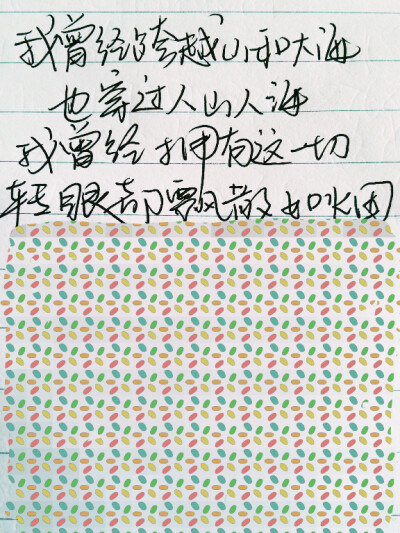 我曾经跨越山和大海
也穿过人山人海
我曾经拥有这一切
转眼都飘散如烟